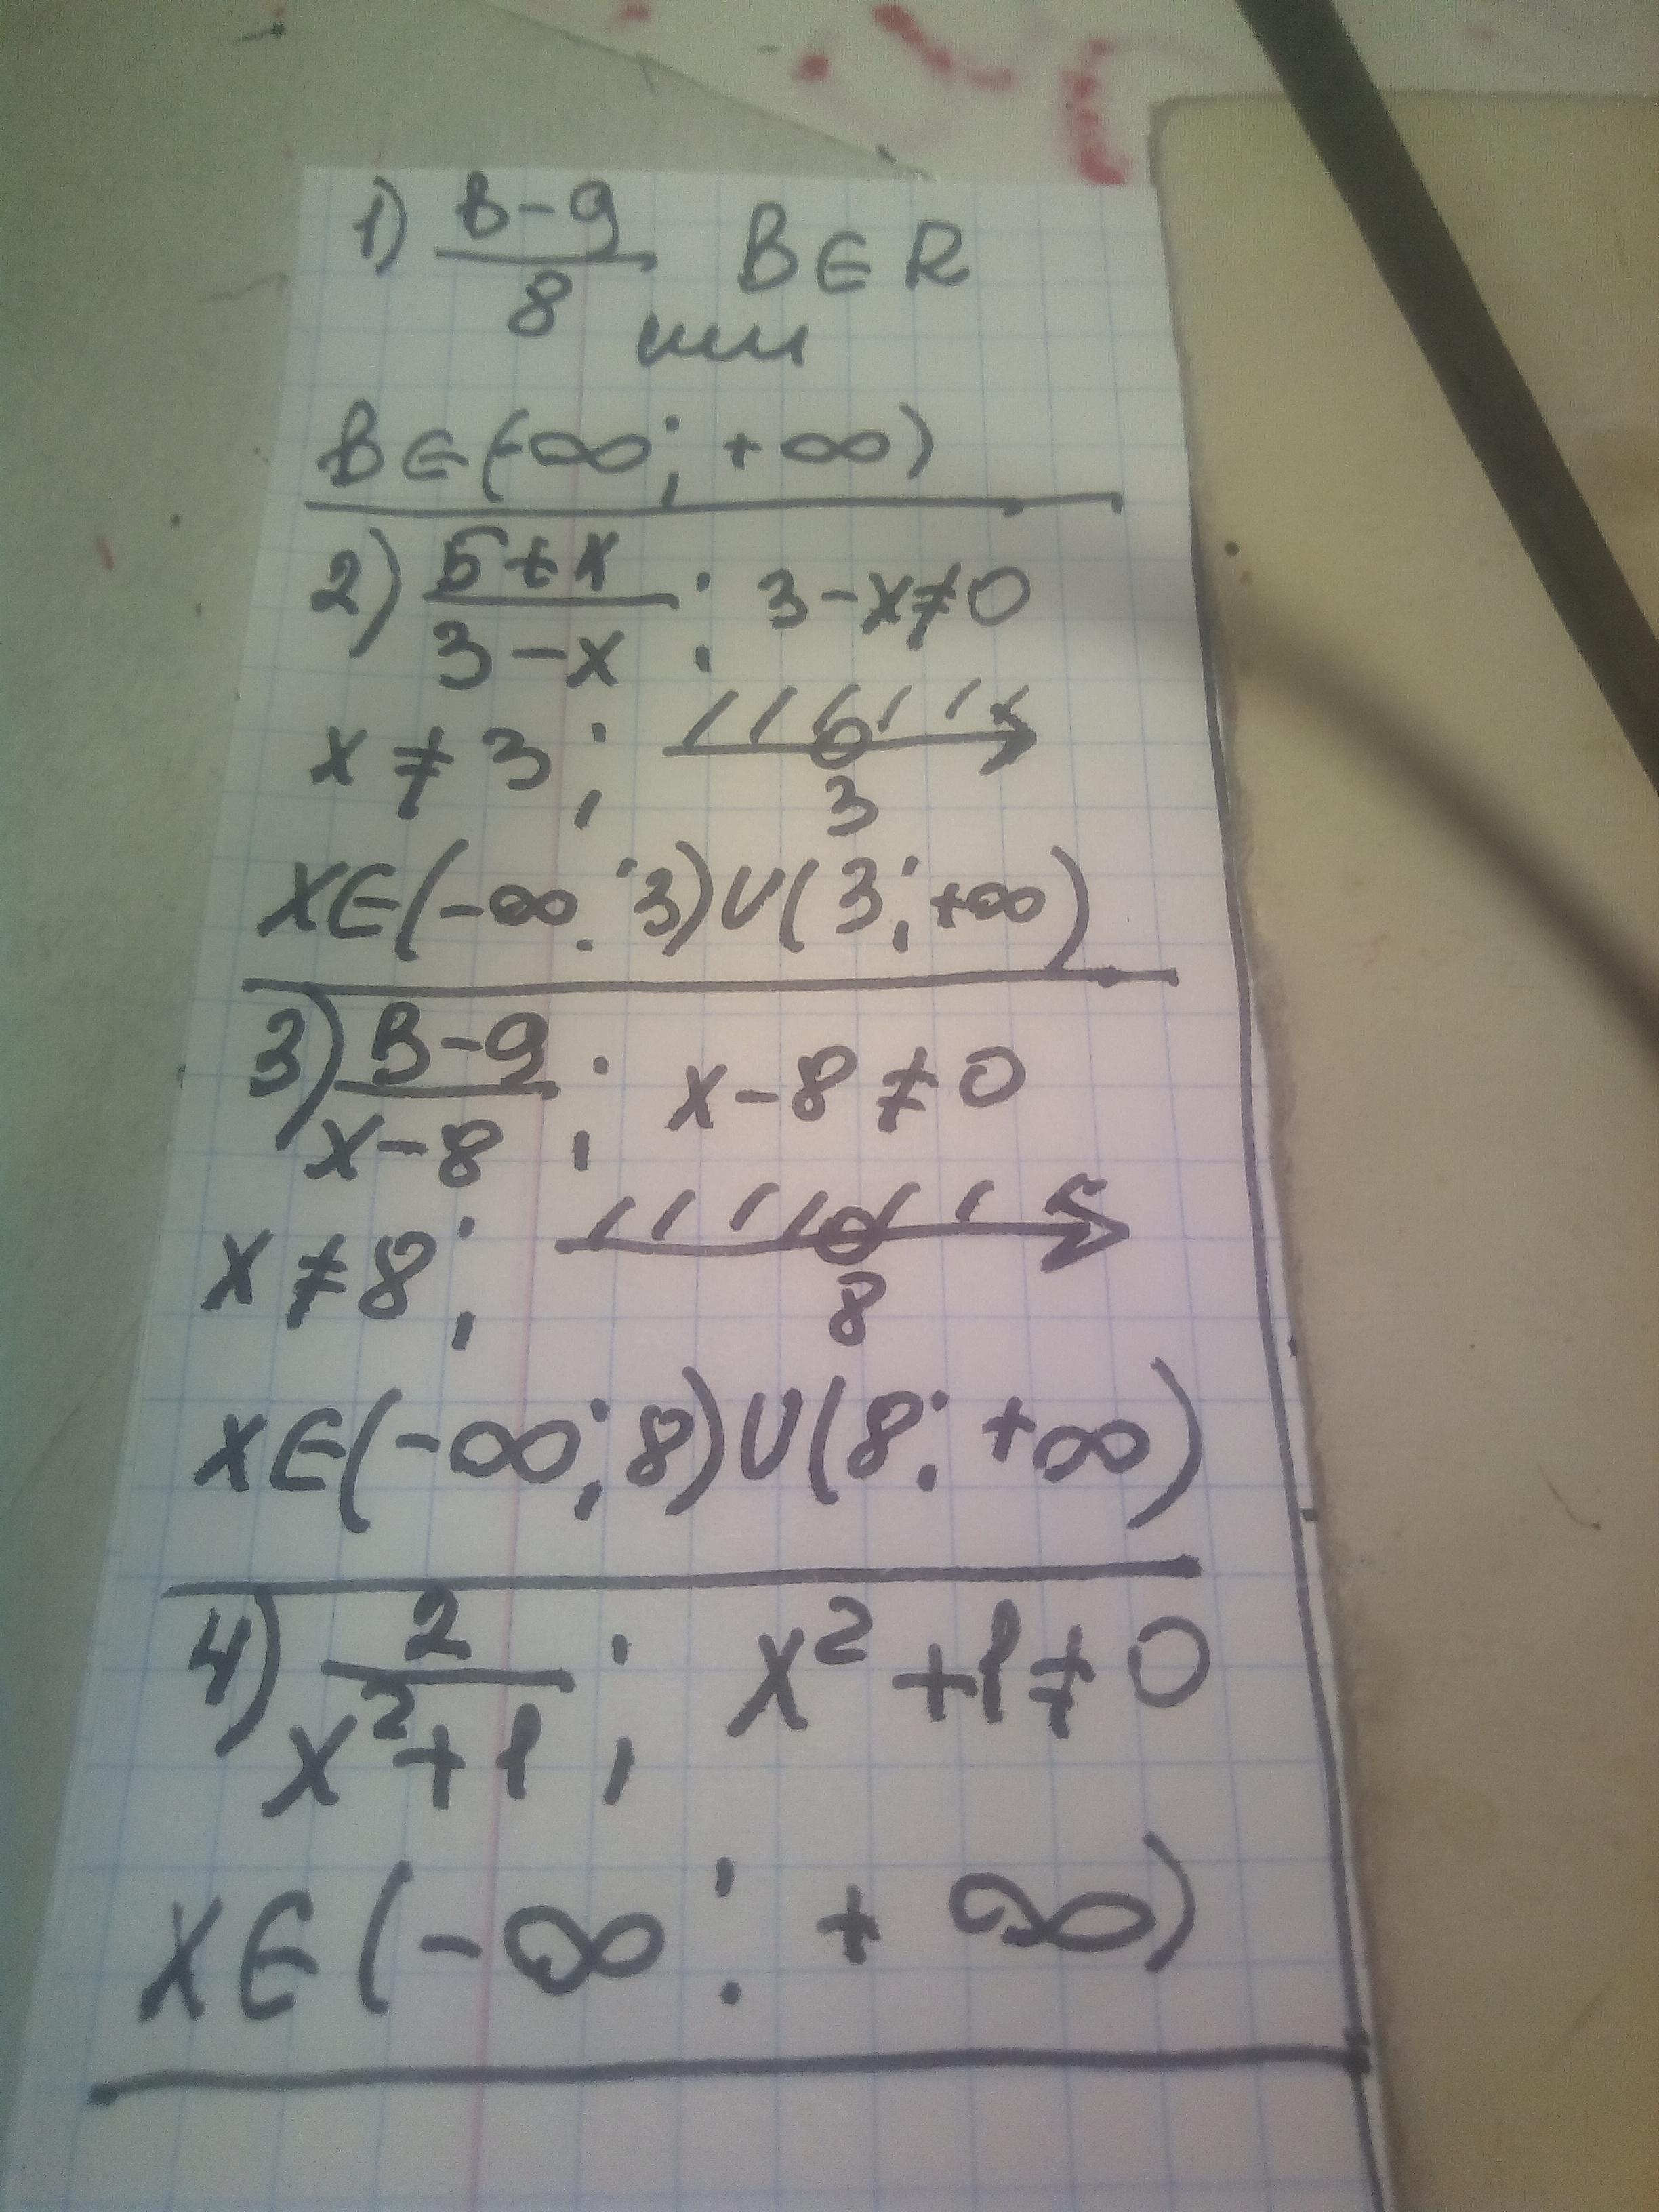 1) (в-9)/8 В∈R
или
В∈(-∞; +∞)
2) (5+x)/(3-x); 3-x≠0
x≠3; 3
x∈(-∞;3)∪(3;+∞)
3) (в-9)/(x-8); x-8≠0
x≠8; 8
x∈(-∞;8)∪(8;+∞)
4) 2/(x²+1); x²+1≠0
x∈(-∞; +∞)